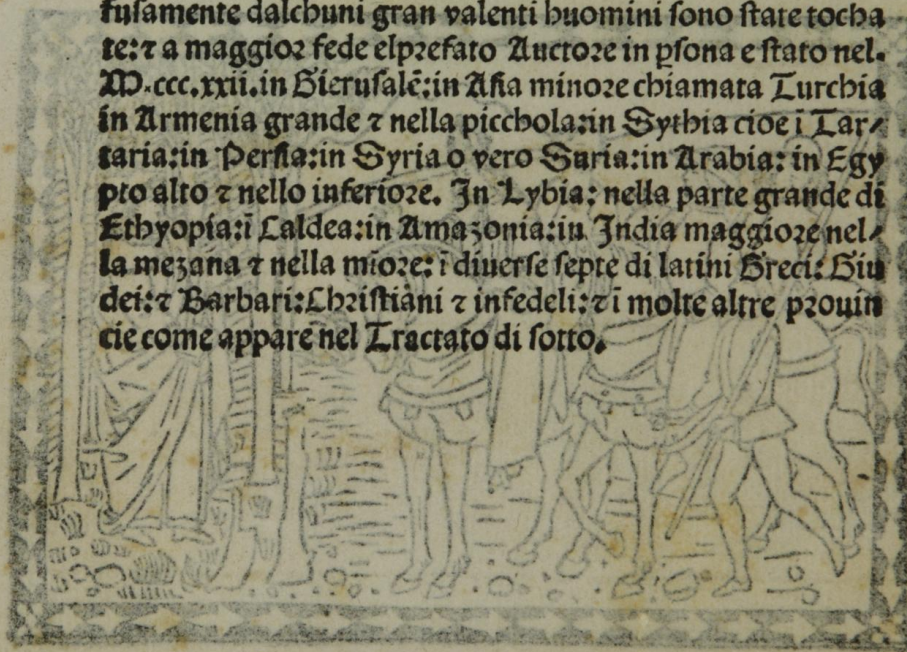 fusamente dalchuni gran valenti huomini sono state tocha
te:⁊ a maggior fede elprefato Auctore in ꝑsona e stato nel.
M.ccc.xxii.in Hierusalē:in Asia minore chiamata Turchia
in Armenia grande ⁊ nella picchola:in Sythia cioe ī Tar/
taria:in Persia:in Syria o vero Suria:in Arabia: in Egy
pto alto ⁊ nello inferiore. In Lybia: nella parte grande di
Ethyopia:ī Caldea:in Amazonia:in India maggiore nel/
la mezana ⁊ nella mīore: ī diuerse septe di latini Greci: Giu
dei:⁊ Barbari:Christiani ⁊ infedeli:⁊ ī molte altre prouin
cie come appare nel Tractato di sotto.